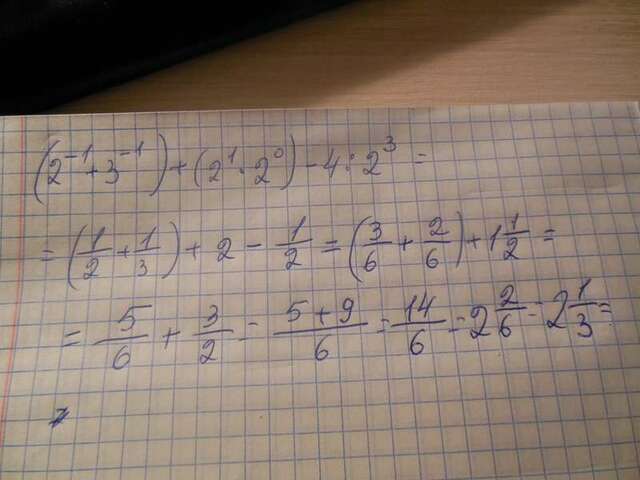 (2⁻¹+3⁻¹)+(2¹·2⁰)-4:2³=
=(1/2+1/3)+2-1/2=(3/6+2/6)+1 1/2=
=5/6+3/2=(5+9)/6=14/6=2 2/6=2 1/3=